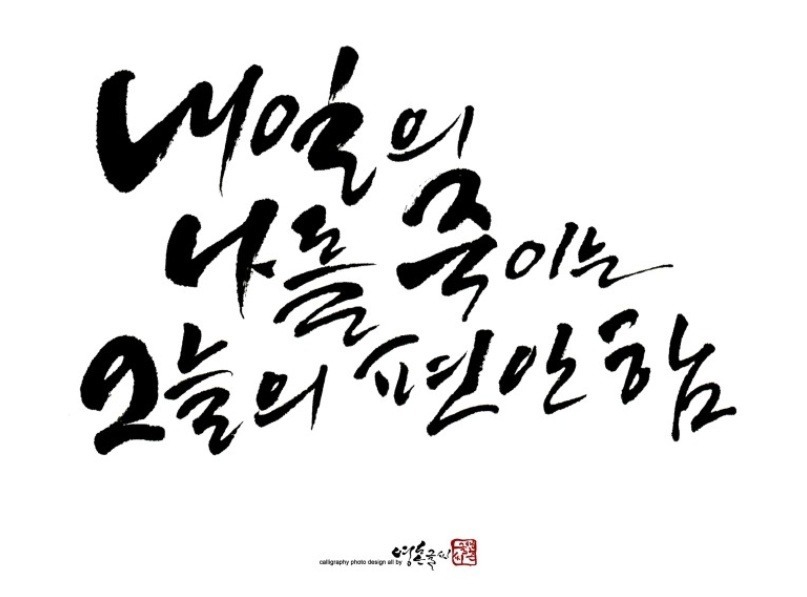 내일의
나를 죽이는
오늘의 편안함
calligraphy photo design all by 영혼글씨